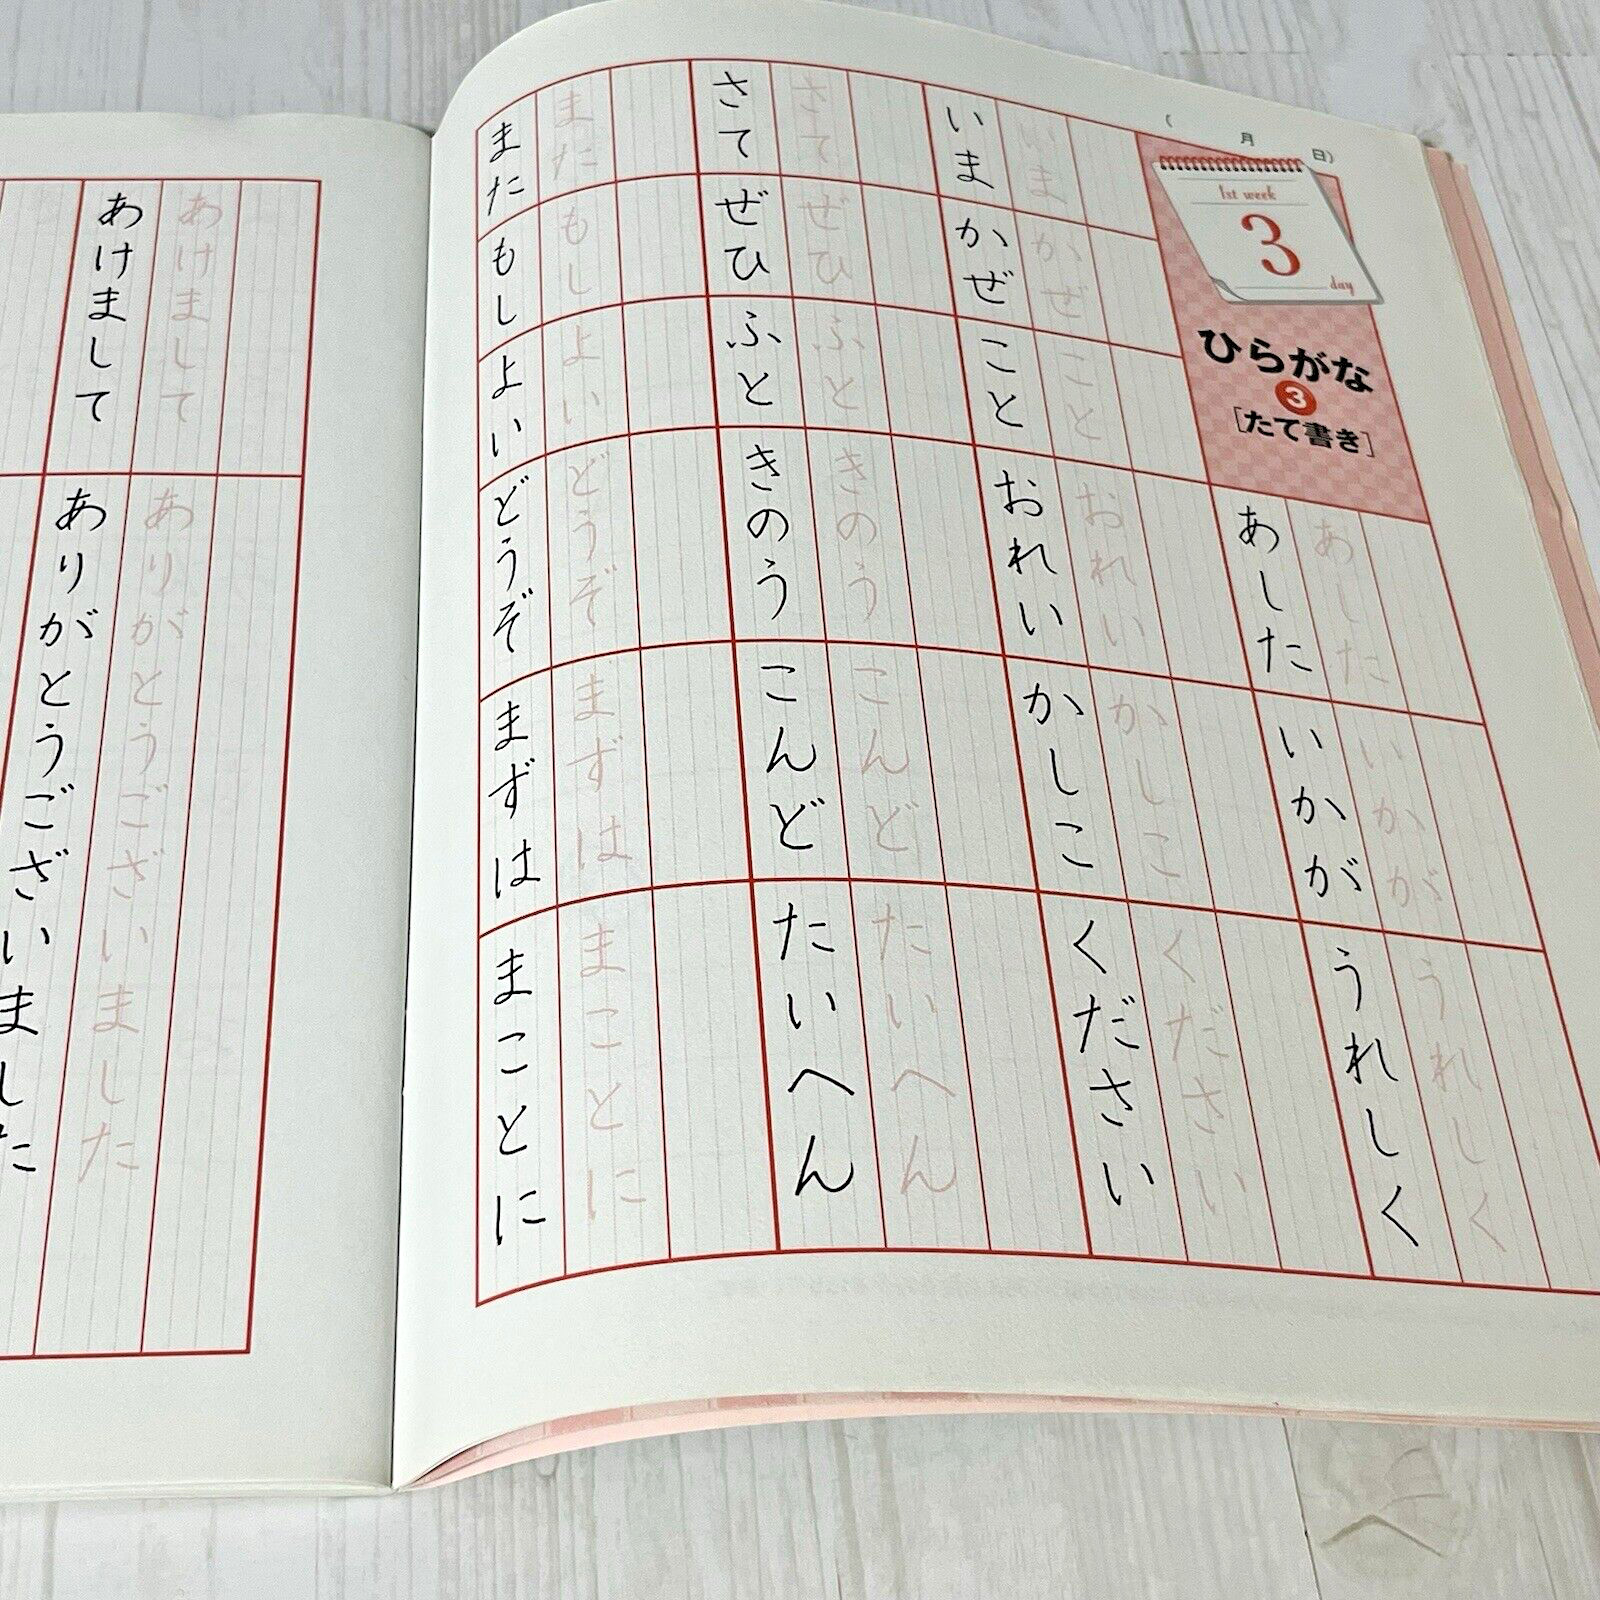 ( 月 日)
1st week
3
day
ひらがな
3
[たて書き]
あした
あした
いかが
いかが
うれしく
うれしく
いま
いま
かぜ
かぜ
こと
こと
おれい
おれい
かしこ
かしこ
ください
ください
さて
さて
ぜひ
ぜひ
ふと
ふと
きのう
きのう
こんど
こんど
たいへん
たいへん
また
また
もし
もし
よい
よい
どうぞ
どうぞ
まずは
まずは
まことに
まことに
あけまして
あけまして
ありがとうございました
ありがとうございました